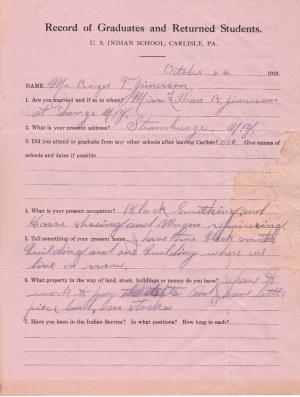 Record of Graduates and Returned Students.
U. S. INDIAN SCHOOL, CARLISLE, PA.
October 26 1910.
NAME Mr Roger T. Jimerson
1. Are you married and if so to whom? Miss Lillian B. Jimerson
at N.Y.
2. What is your present address? N.Y.
3. Did you attend or graduate from any other schools after leaving Carlisle? no Give names of
schools and dates if possible
4. What is your present occupation? Black Smithing and
Horse shoeing and Wagon repairing.
5. Tell something of your present home. I have this Black smith
building and one building where we
live in
6. What property in the way of land, stock, buildings or money do you have? I have to
work to pay have little
piece land, no stocks
7. Have you been in the Indian Service? In what positions? How long in each?